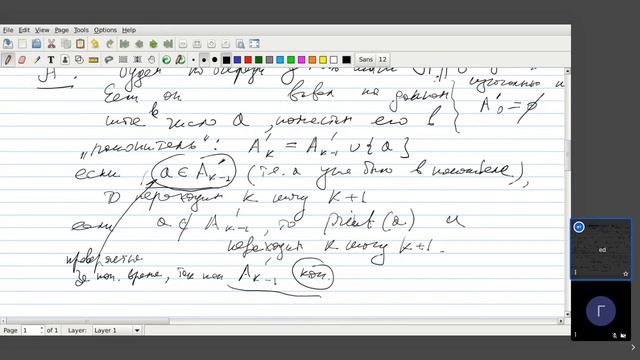 File Edit View Journal Tools Options Help
Sans 12
A': будем по очереди
Если он на данном изначально
шаге в число a, поместим его в A'₀ = ∅
„накопитель“: A'ₖ = A'ₖ₋₁ ∪ {a}
если a ∈ A'ₖ₋₁ (т.е. a уже было в накопителе),
то переходим к шагу k+1
если a ∉ A'ₖ₋₁, то print(a) и
переходим к шагу k+1.
проверяется
за кон. время, так как A'ₖ₋₁ кон.
ed
Г
Page 1 of 1 Layer: Layer 1